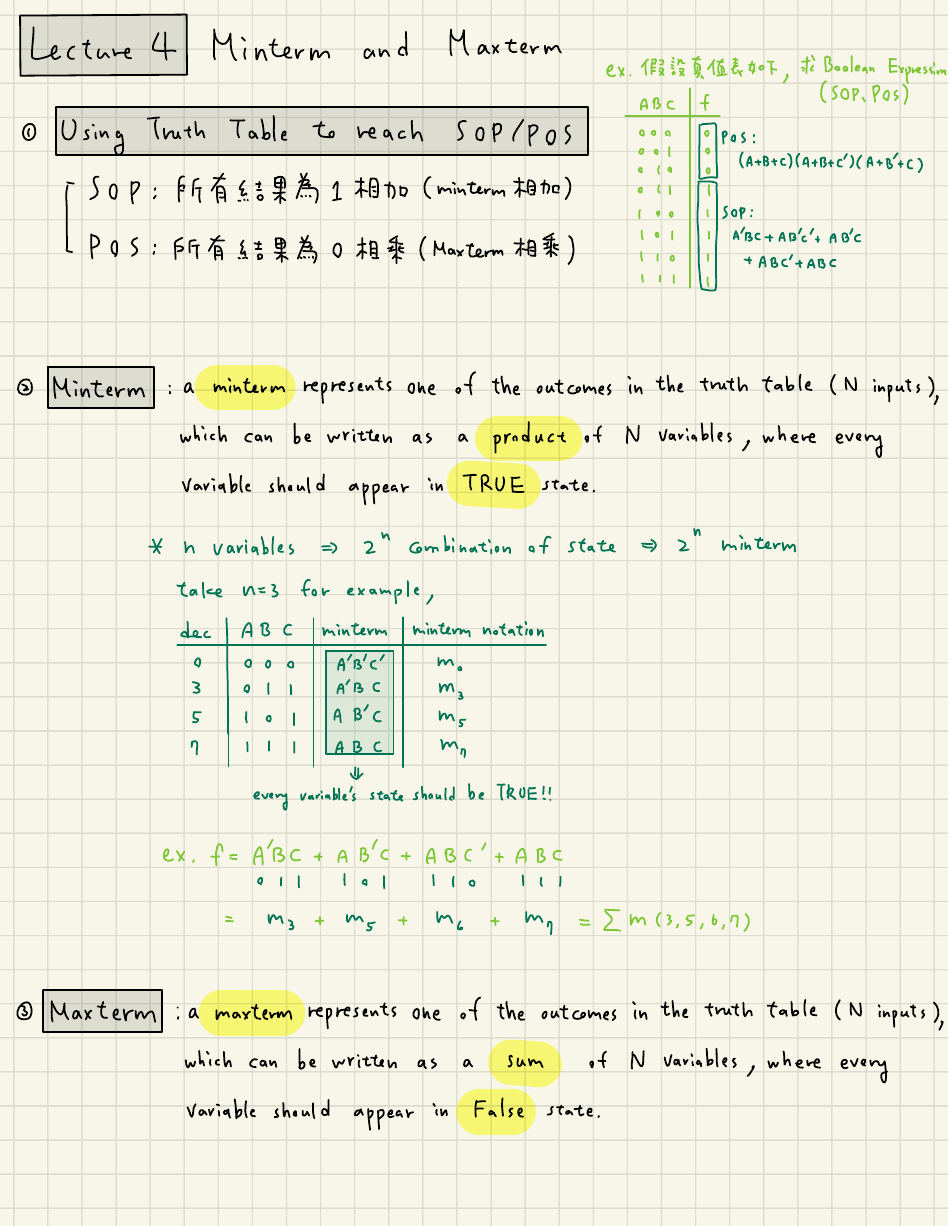 Lecture 4 Minterm and Maxterm
① Using Truth Table to reach SOP/POS
SOP : 所有結果為 1 相加 (minterm 相加)
POS : 所有結果為 0 相乘 (Maxterm 相乘)
ex. 假設真值表如下, 求 Boolean Expression
(SOP、POS)
A B C f
0 0 0 0
0 0 1 0
0 1 0 0
0 1 1 1
1 0 0 1
1 0 1 1
1 1 0 1
1 1 1 1
POS:
(A+B+C)(A+B+C')(A+B'+C)
SOP:
A'BC + AB'C' + AB'C
+ ABC' + ABC
② Minterm : a minterm represents one of the outcomes in the truth table (N inputs),
which can be written as a product of N variables, where every
variable should appear in TRUE state.
* n variables ⇒ 2^n combination of state ⇒ 2^n minterm
take n=3 for example,
dec A B C minterm minterm notation
0 0 0 0 A'B'C' m₀
3 0 1 1 A'BC m₃
5 1 0 1 AB'C m₅
7 1 1 1 ABC m₇
⇓
every variable's state should be TRUE!!
ex. f = A'BC + AB'C + ABC' + ABC
0 1 1 1 0 1 1 1 0 1 1 1
= m₃ + m₅ + m₆ + m₇ = ∑ m (3,5,6,7)
③ Maxterm : a maxterm represents one of the outcomes in the truth table (N inputs),
which can be written as a sum of N variables, where every
variable should appear in False state.